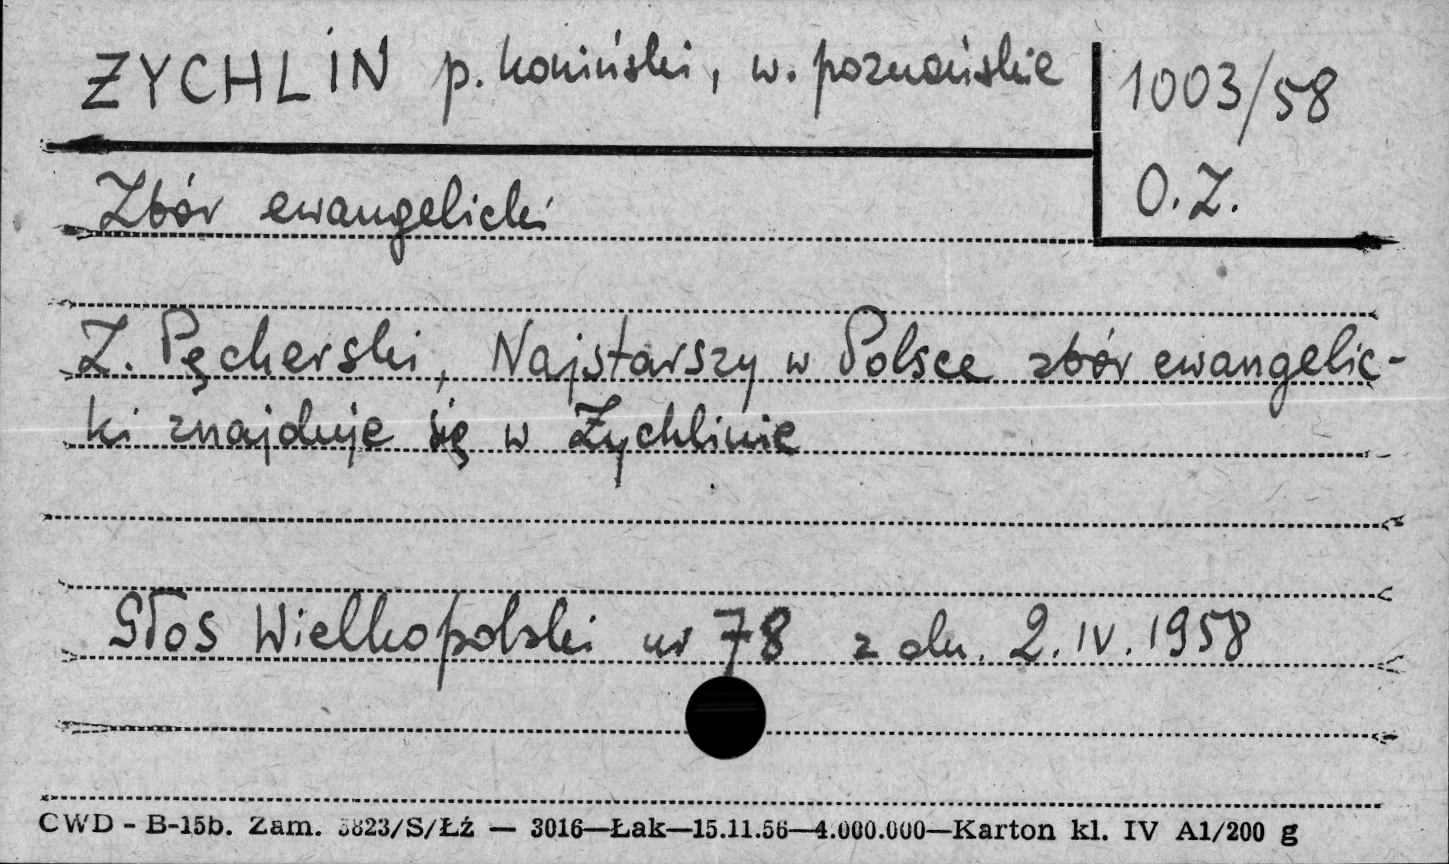 ŻYCHLIN p. koniński, w. poznańskie
1003/58
O.Z.
Zbór ewangelicki
Z. Pęcherski, Najstarszy w Polsce zbór ewangelic-
ki znajduje się w Żychlinie
Głos Wielkopolski nr 78 z dn. 2.IV.1958
CWD - B-15b. Zam. 3823/S/Łź — 3016—Łak—15.11.56—4.000.000—Karton kl. IV A1/200 g